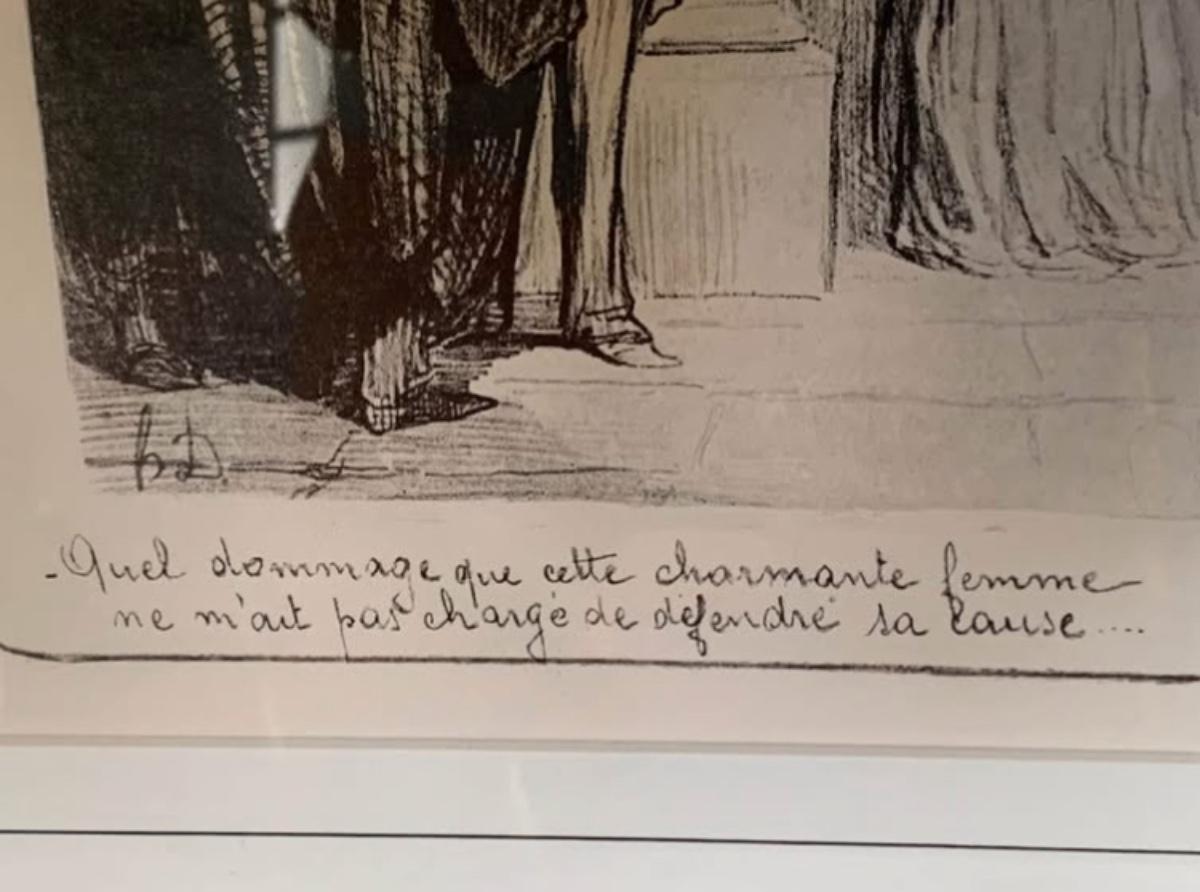 h.D.
-Quel dommage que cette charmante femme
ne m'ait pas chargé de défendre sa cause....